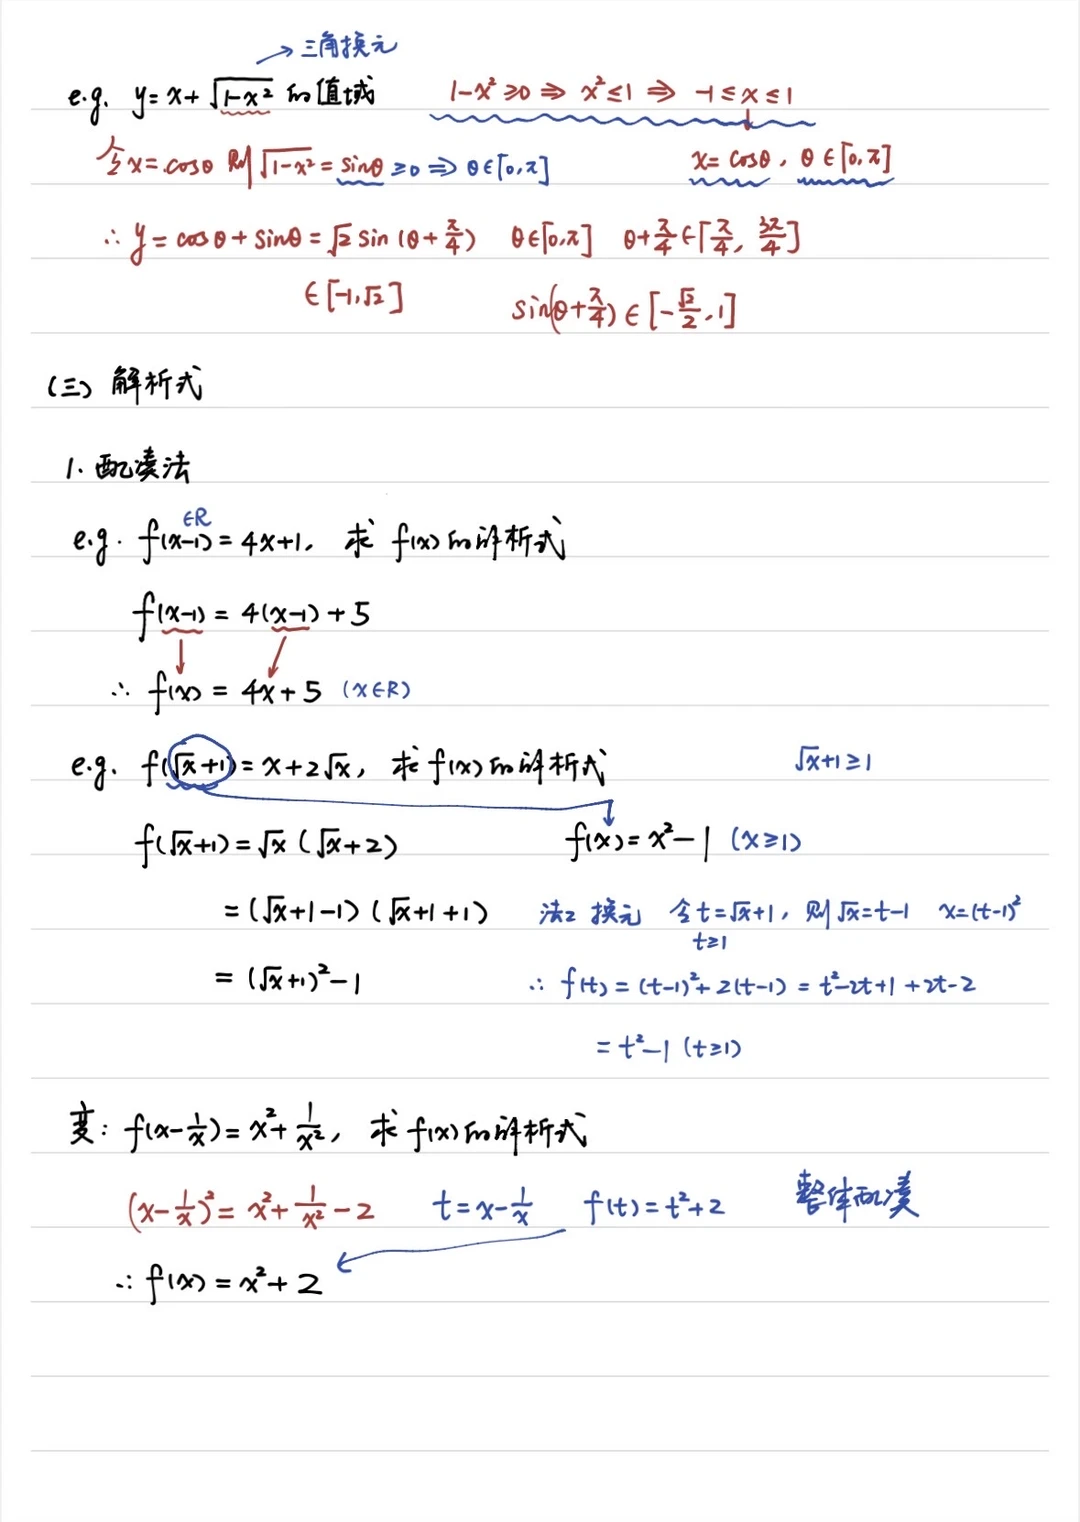 →三角换元
e.g. y=x+√(1-x²) 的值域 1-x²≥0 ⇒ x²≤1 ⇒ -1≤x≤1
令x=cosθ 则√(1-x²)=sinθ≥0 ⇒ θ∈[0,π] x=cosθ, θ∈[0,π]
∴ y=cosθ+sinθ=√2 sin(θ+π/4) θ∈[0,π] θ+π/4∈[π/4, 5π/4]
∈[-1,√2] sin(θ+π/4)∈[-√2/2,1]
(三) 解析式
1. 配凑法
∈R
e.g. f(x-1)=4x+1, 求 f(x)的解析式
f(x-1)=4(x-1)+5
∴ f(x)=4x+5 (x∈R)
e.g. f(√x+1)=x+2√x, 求f(x)的解析式 √x+1≥1
f(√x+1)=√x(√x+2) f(x)=x²-1 (x≥1)
=(√x+1-1)(√x+1+1) 法2 换元 令t=√x+1, 则√x=t-1 x=(t-1)²
t≥1
=(√x+1)²-1 ∴ f(t)=(t-1)²+2(t-1)=t²-2t+1+2t-2
=t²-1 (t≥1)
变: f(x-1/x)=x²+1/x², 求f(x)的解析式
(x-1/x)²=x²+1/x²-2 t=x-1/x f(t)=t²+2 整体配凑
∴ f(x)=x²+2